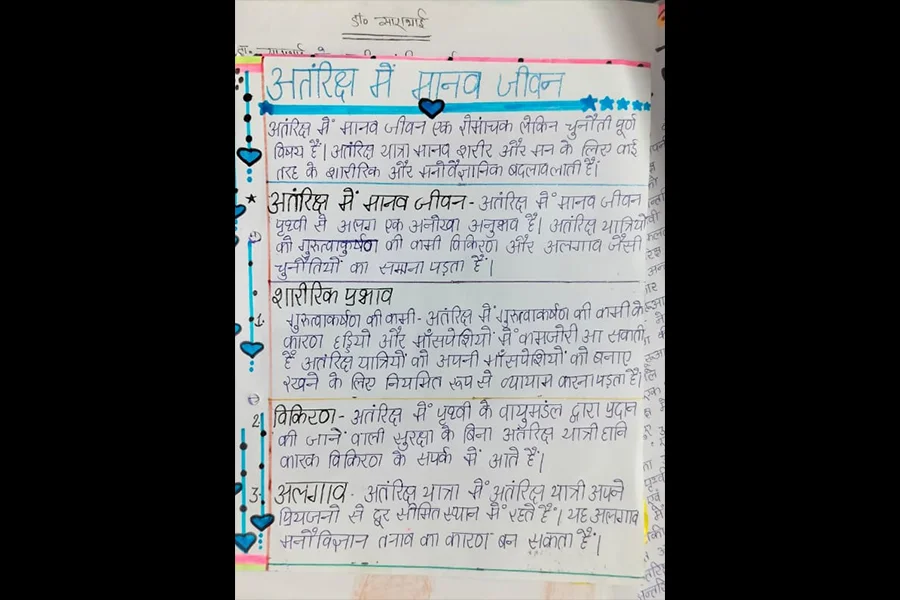 डॉ० साराभाई
अतंरिक्ष में मानव जीवन
अतंरिक्ष में मानव जीवन एक रोमांचक लेकिन चुनौती पूर्ण
विषय है। अतंरिक्ष यात्रा मानव शरीर और मन के लिए कई
तरह के शारीरिक और मनोवैज्ञानिक बदलाव लाती है।
अतंरिक्ष में मानव जीवन - अतंरिक्ष में मानव जीवन
पृथ्वी से अलग एक अनोखा अनुभव है। अतंरिक्ष यात्रियो
को गुरुत्वाकुर्षण की कमी विकिरण और अलगाव जैसी
चुनौतियों का समाना पड़ता है।
शारीरिक प्रभाव
1. गुरुत्वाकर्षण की कमी - अतंरिक्ष में गुरुत्वाकर्षण की कमी के
कारण हड्डियो और माँसपेशियो में कमजोरी आ सकती
है अतंरिक्ष यात्रियों को अपनी माँसपेशियों को बनाए
रखने के लिए नियमित रूप से व्यायाम करना पड़ता है।
2. विकिरण - अतंरिक्ष में पृथ्वी के वायुमंडल द्वारा प्रदान
की जाने वाली सुरक्षा के बिना अतंरिक्ष यात्री हानि
कारक विकिरण के संपर्क में आते है।
3. अलगाव - अतंरिक्ष यात्रा में अतंरिक्ष यात्री अपने
प्रियजनो से दूर सीमित स्थान में रहते है। यह अलगाव
मनौविज्ञान तनाव का कारण बन सकता है।